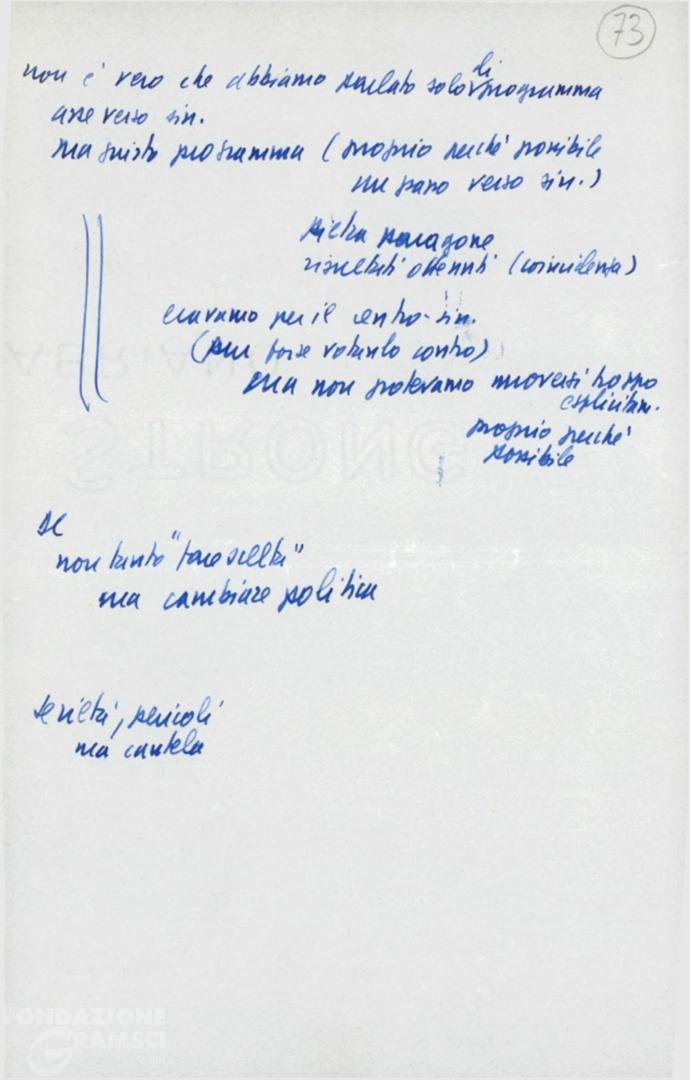 73
non è vero che abbiamo parlato solo di programma
asse verso sin.
ma giusto programma (proprio perché possibile
un passo verso sin.)
pietra paragone
risultati ottenuti (coincidenza)
eravamo per il centro-sin.
(pur forse votando contro)
ma non potevamo muoversi troppo
esplicitam.
proprio perché
possibile
non tanto "fare scelta"
ma cambiare politica
serietà, pericoli
ma cautela
FONDAZIONE
GRAMSCI